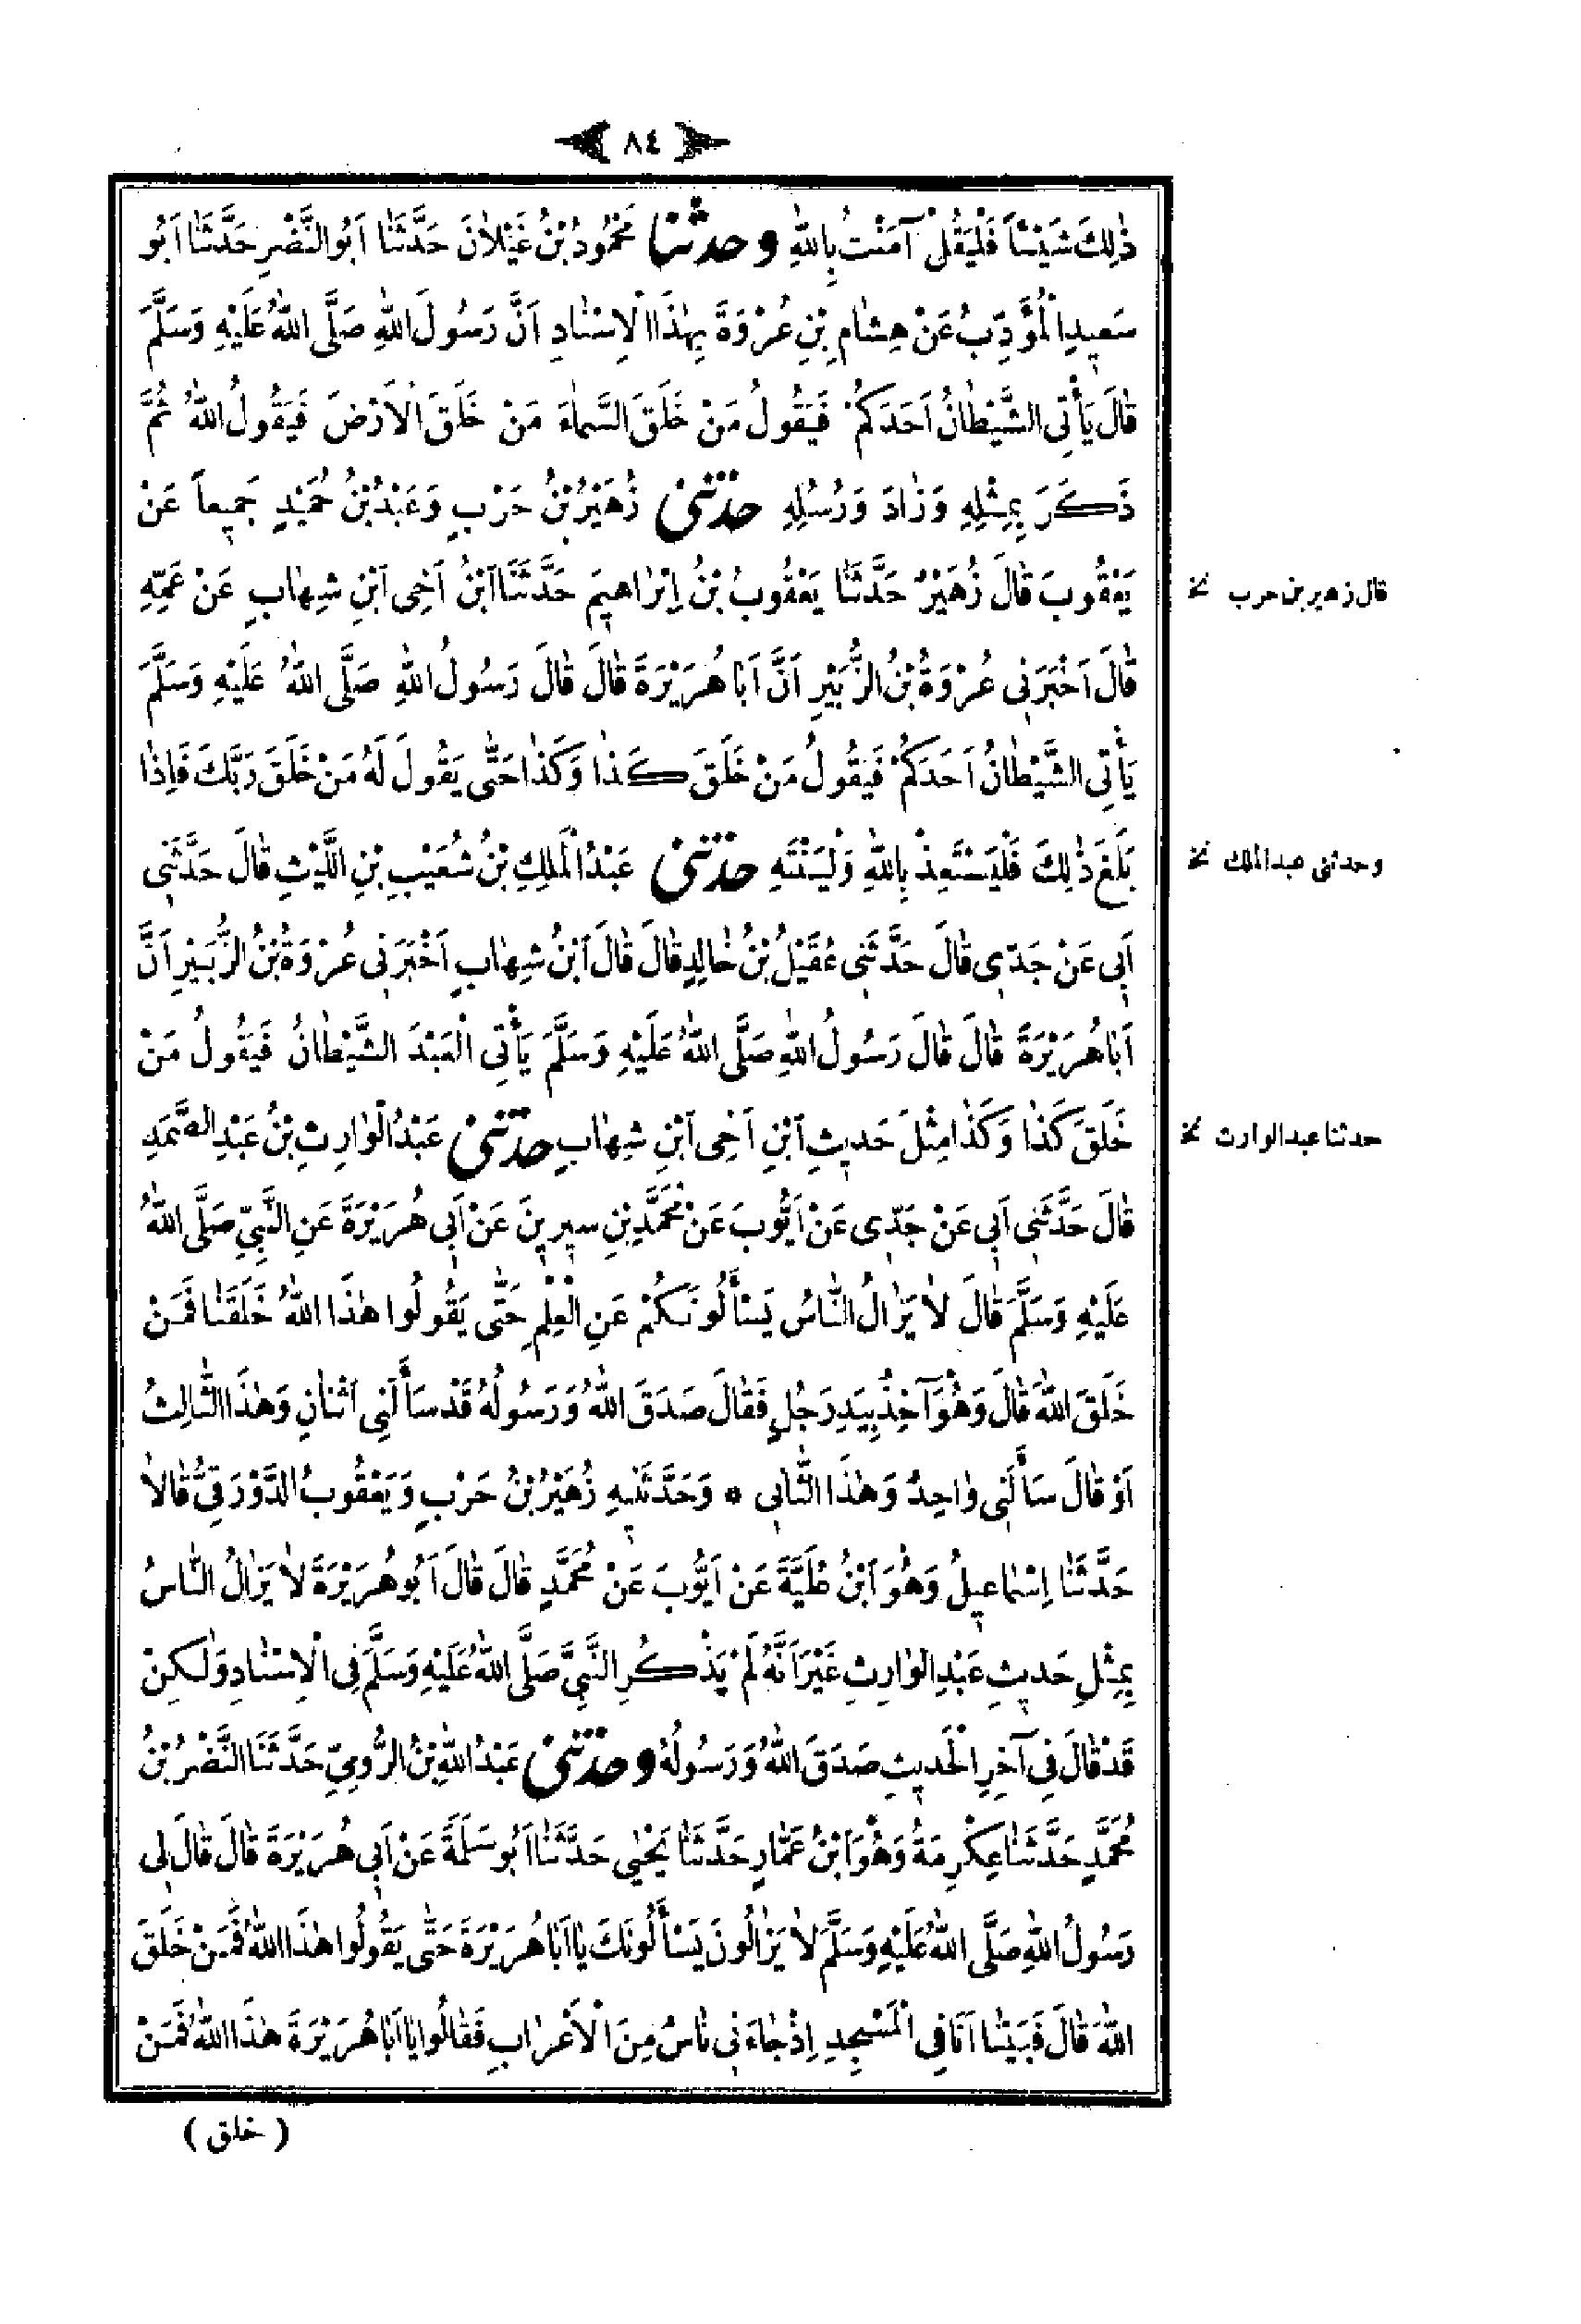 ٨٤
ذٰلِكَ شَيْئاً فَلْيَقُلْ آمَنْتُ بِاللّٰهِ وحدثنا مَحْمُودُ بْنُ غَيْلاٰنَ حَدَّثَنٰا اَبُو النَّضْرِ حَدَّثَنٰا اَبُو
سَعِيدٍ الْمُؤَدِّبُ عَنْ هِشٰامِ بْنِ عُرْوَةَ بِهٰذَا الْاِسْنٰادِ اَنَّ رَسُولَ اللّٰهِ صَلَّى اللّٰهُ عَلَيْهِ وَسَلَّمَ
قٰالَ يَأْتِى الشَّيْطٰانُ اَحَدَكُمْ فَيَقُولُ مَنْ خَلَقَ السَّمٰاءَ مَنْ خَلَقَ الْاَرْضَ فَيَقُولُ اللّٰهُ ثُمَّ
ذَكَرَ بِمِثْلِهِ وَزٰادَ وَرُسُلِهِ حدثنى زُهَيْرُ بْنُ حَرْبٍ وَعَبْدُ بْنُ حُمَيْدٍ جَمِيعاً عَنْ
يَعْقُوبَ قٰالَ زُهَيْرٌ حَدَّثَنٰا يَعْقُوبُ بْنُ اِبْرٰاهِيمَ حَدَّثَنَا ابْنُ اَخِى ابْنِ شِهٰابٍ عَنْ عَمِّهِ
قال زهير بن حرب نخ
قٰالَ اَخْبَرَنِى عُرْوَةُ بْنُ الزُّبَيْرِ اَنَّ اَبٰا هُرَيْرَةَ قٰالَ قٰالَ رَسُولُ اللّٰهِ صَلَّى اللّٰهُ عَلَيْهِ وَسَلَّمَ
يَأْتِى الشَّيْطٰانُ اَحَدَكُمْ فَيَقُولُ مَنْ خَلَقَ كَذٰا وَكَذٰا حَتّٰى يَقُولَ لَهُ مَنْ خَلَقَ رَبَّكَ فَاِذٰا
بَلَغَ ذٰلِكَ فَلْيَسْتَعِذْ بِاللّٰهِ وَلْيَنْتَهِ حدثنى عَبْدُ الْمَلِكِ بْنُ شُعَيْبِ بْنِ اللَّيْثِ قٰالَ حَدَّثَنِى
وحدثنى عبد الملك نخ
اَبِى عَنْ جَدِّى قٰالَ حَدَّثَنِى عُقَيْلُ بْنُ خٰالِدٍ قٰالَ قٰالَ ابْنُ شِهٰابٍ اَخْبَرَنِى عُرْوَةُ بْنُ الزُّبَيْرِ اَنَّ
اَبٰا هُرَيْرَةَ قٰالَ قٰالَ رَسُولُ اللّٰهِ صَلَّى اللّٰهُ عَلَيْهِ وَسَلَّمَ يَأْتِى الْعَبْدَ الشَّيْطٰانُ فَيَقُولُ مَنْ
خَلَقَ كَذٰا وَكَذٰا مِثْلَ حَدِيثِ ابْنِ اَخِى ابْنِ شِهٰابٍ حدثنى عَبْدُ الْوٰارِثِ بْنُ عَبْدِ الصَّمَدِ
حدثنا عبد الوارث نخ
قٰالَ حَدَّثَنِى اَبِى عَنْ جَدِّى عَنْ اَيُّوبَ عَنْ مُحَمَّدِ بْنِ سِيرِينَ عَنْ اَبِى هُرَيْرَةَ عَنِ النَّبِىِّ صَلَّى اللّٰهُ
عَلَيْهِ وَسَلَّمَ قٰالَ لاٰ يَزٰالُ النّٰاسُ يَسْأَلُونَكُمْ عَنِ الْعِلْمِ حَتّٰى يَقُولُوا هٰذَا اللّٰهُ خَلَقَنٰا فَمَنْ
خَلَقَ اللّٰهَ قٰالَ وَهُوَ آخِذٌ بِيَدِ رَجُلٍ فَقٰالَ صَدَقَ اللّٰهُ وَرَسُولُهُ قَدْ سَأَلَنِى اثْنٰانِ وَهٰذَا الثّٰالِثُ
اَوْ قٰالَ سَأَلَنِى وٰاحِدٌ وَهٰذَا الثّٰانِى * وَحَدَّثَنِيهِ زُهَيْرُ بْنُ حَرْبٍ وَيَعْقُوبُ الدَّوْرَقِىُّ قٰالاٰ
حَدَّثَنٰا اِسْمٰاعِيلُ وَهُوَ ابْنُ عُلَيَّةَ عَنْ اَيُّوبَ عَنْ مُحَمَّدٍ قٰالَ قٰالَ اَبُو هُرَيْرَةَ لاٰ يَزٰالُ النّٰاسُ
بِمِثْلِ حَدِيثِ عَبْدِ الْوٰارِثِ غَيْرَ اَنَّهُ لَمْ يَذْكُرِ النَّبِىَّ صَلَّى اللّٰهُ عَلَيْهِ وَسَلَّمَ فِى الْاِسْنٰادِ وَلٰكِنْ
قَدْ قٰالَ فِى آخِرِ الْحَدِيثِ صَدَقَ اللّٰهُ وَرَسُولُهُ وحدثنى عَبْدُ اللّٰهِ بْنُ الرُّومِىِّ حَدَّثَنَا النَّضْرُ بْنُ
مُحَمَّدٍ حَدَّثَنٰا عِكْرِمَةُ وَهُوَ ابْنُ عَمّٰارٍ حَدَّثَنٰا يَحْيٰى حَدَّثَنٰا اَبُو سَلَمَةَ عَنْ اَبِى هُرَيْرَةَ قٰالَ قٰالَ لِى
رَسُولُ اللّٰهِ صَلَّى اللّٰهُ عَلَيْهِ وَسَلَّمَ لاٰ يَزٰالُونَ يَسْأَلُونَكَ يٰا اَبٰا هُرَيْرَةَ حَتّٰى يَقُولُوا هٰذَا اللّٰهُ فَمَنْ خَلَقَ
اللّٰهَ قٰالَ فَبَيْنٰا اَنَا فِى الْمَسْجِدِ اِذْ جٰاءَنِى نٰاسٌ مِنَ الْاَعْرٰابِ فَقٰالُوا يٰا اَبٰا هُرَيْرَةَ هٰذَا اللّٰهُ فَمَنْ
( خلق )